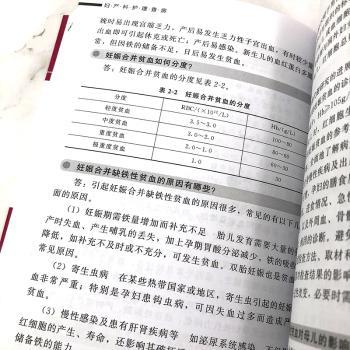 妇·产·科·护·理·查·房
娩时易出现宫缩乏力,产后易发生乏力性子宫出血,有时较少
出血即可引起休克或死亡;产后易感染。新生儿的血红蛋白多
常,但因铁的储备不足,日后易发生贫血。
妊娠合并贫血如何分度?
答:妊娠合并贫血的分度见表2-2。
表 2-2 妊娠合并贫血的分度
分度 RBC/(×10¹²/L) Hb/(g/L)
轻度贫血 3.5~3.0 100~80
中度贫血 3.0~2.0 80~60
重度贫血 2.0~1.0 60~30
极重度贫血 1.0 30
妊娠合并缺铁性贫血的原因有哪些?
答:引起妊娠合并缺铁性贫血的原因很多,常见的有以下几
面的原因。
(1)妊娠期需铁量增加而补充不足 胎儿发育需要大量的
产时失血、产生哺乳的丢失,加上孕期胃酸分泌减少,铁的吸
降低,如补充不及时或不充分,可发生贫血。双胎妊娠也是贫
常见原因。
(2)寄生虫病 在某些热带国家或地区,寄生虫引起的妊娠
血非常严重;特别是孕妇患钩虫病,可因失血过多而造成严
贫血。
(3)慢性感染及患有肝肾疾病等 如泌尿系统感染,不
红细胞的产生、寿命,还影响其
储备铁的能力